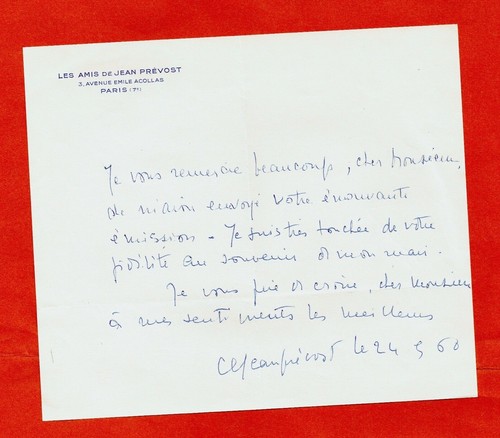 LES AMIS DE JEAN PRÉVOST
3, AVENUE EMILE ACOLLAS
PARIS (7e)
Je vous remercie beaucoup, cher Monsieur,
de m'avoir envoyé votre émouvante
émission. Je suis très touchée de votre
fidélité au souvenir de mon mari.
Je vous prie de croire, cher Monsieur
à mes sentiments les meilleurs
Cl Jean Prévost le 24 5 60